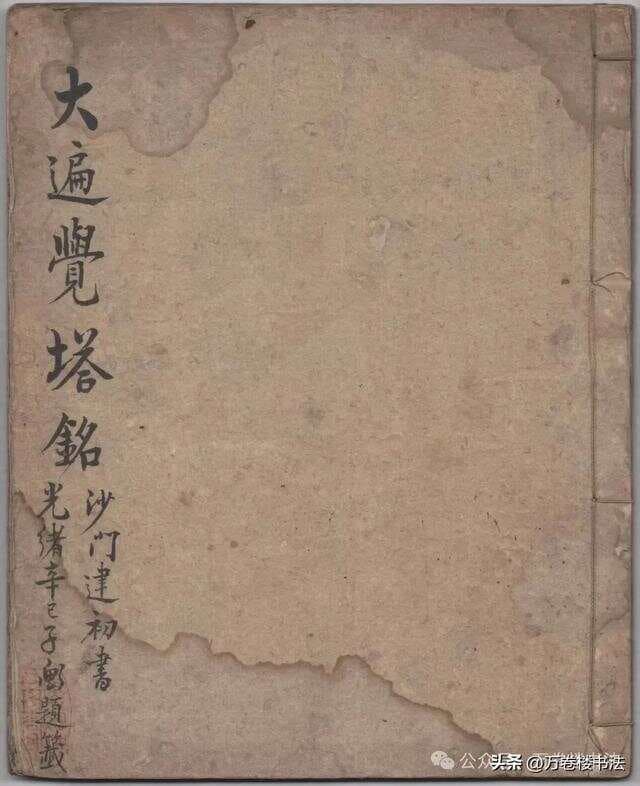 大遍覺塔銘
沙門建初書
光緒辛巳子題籤
公众号
头条 @万卷楼书法